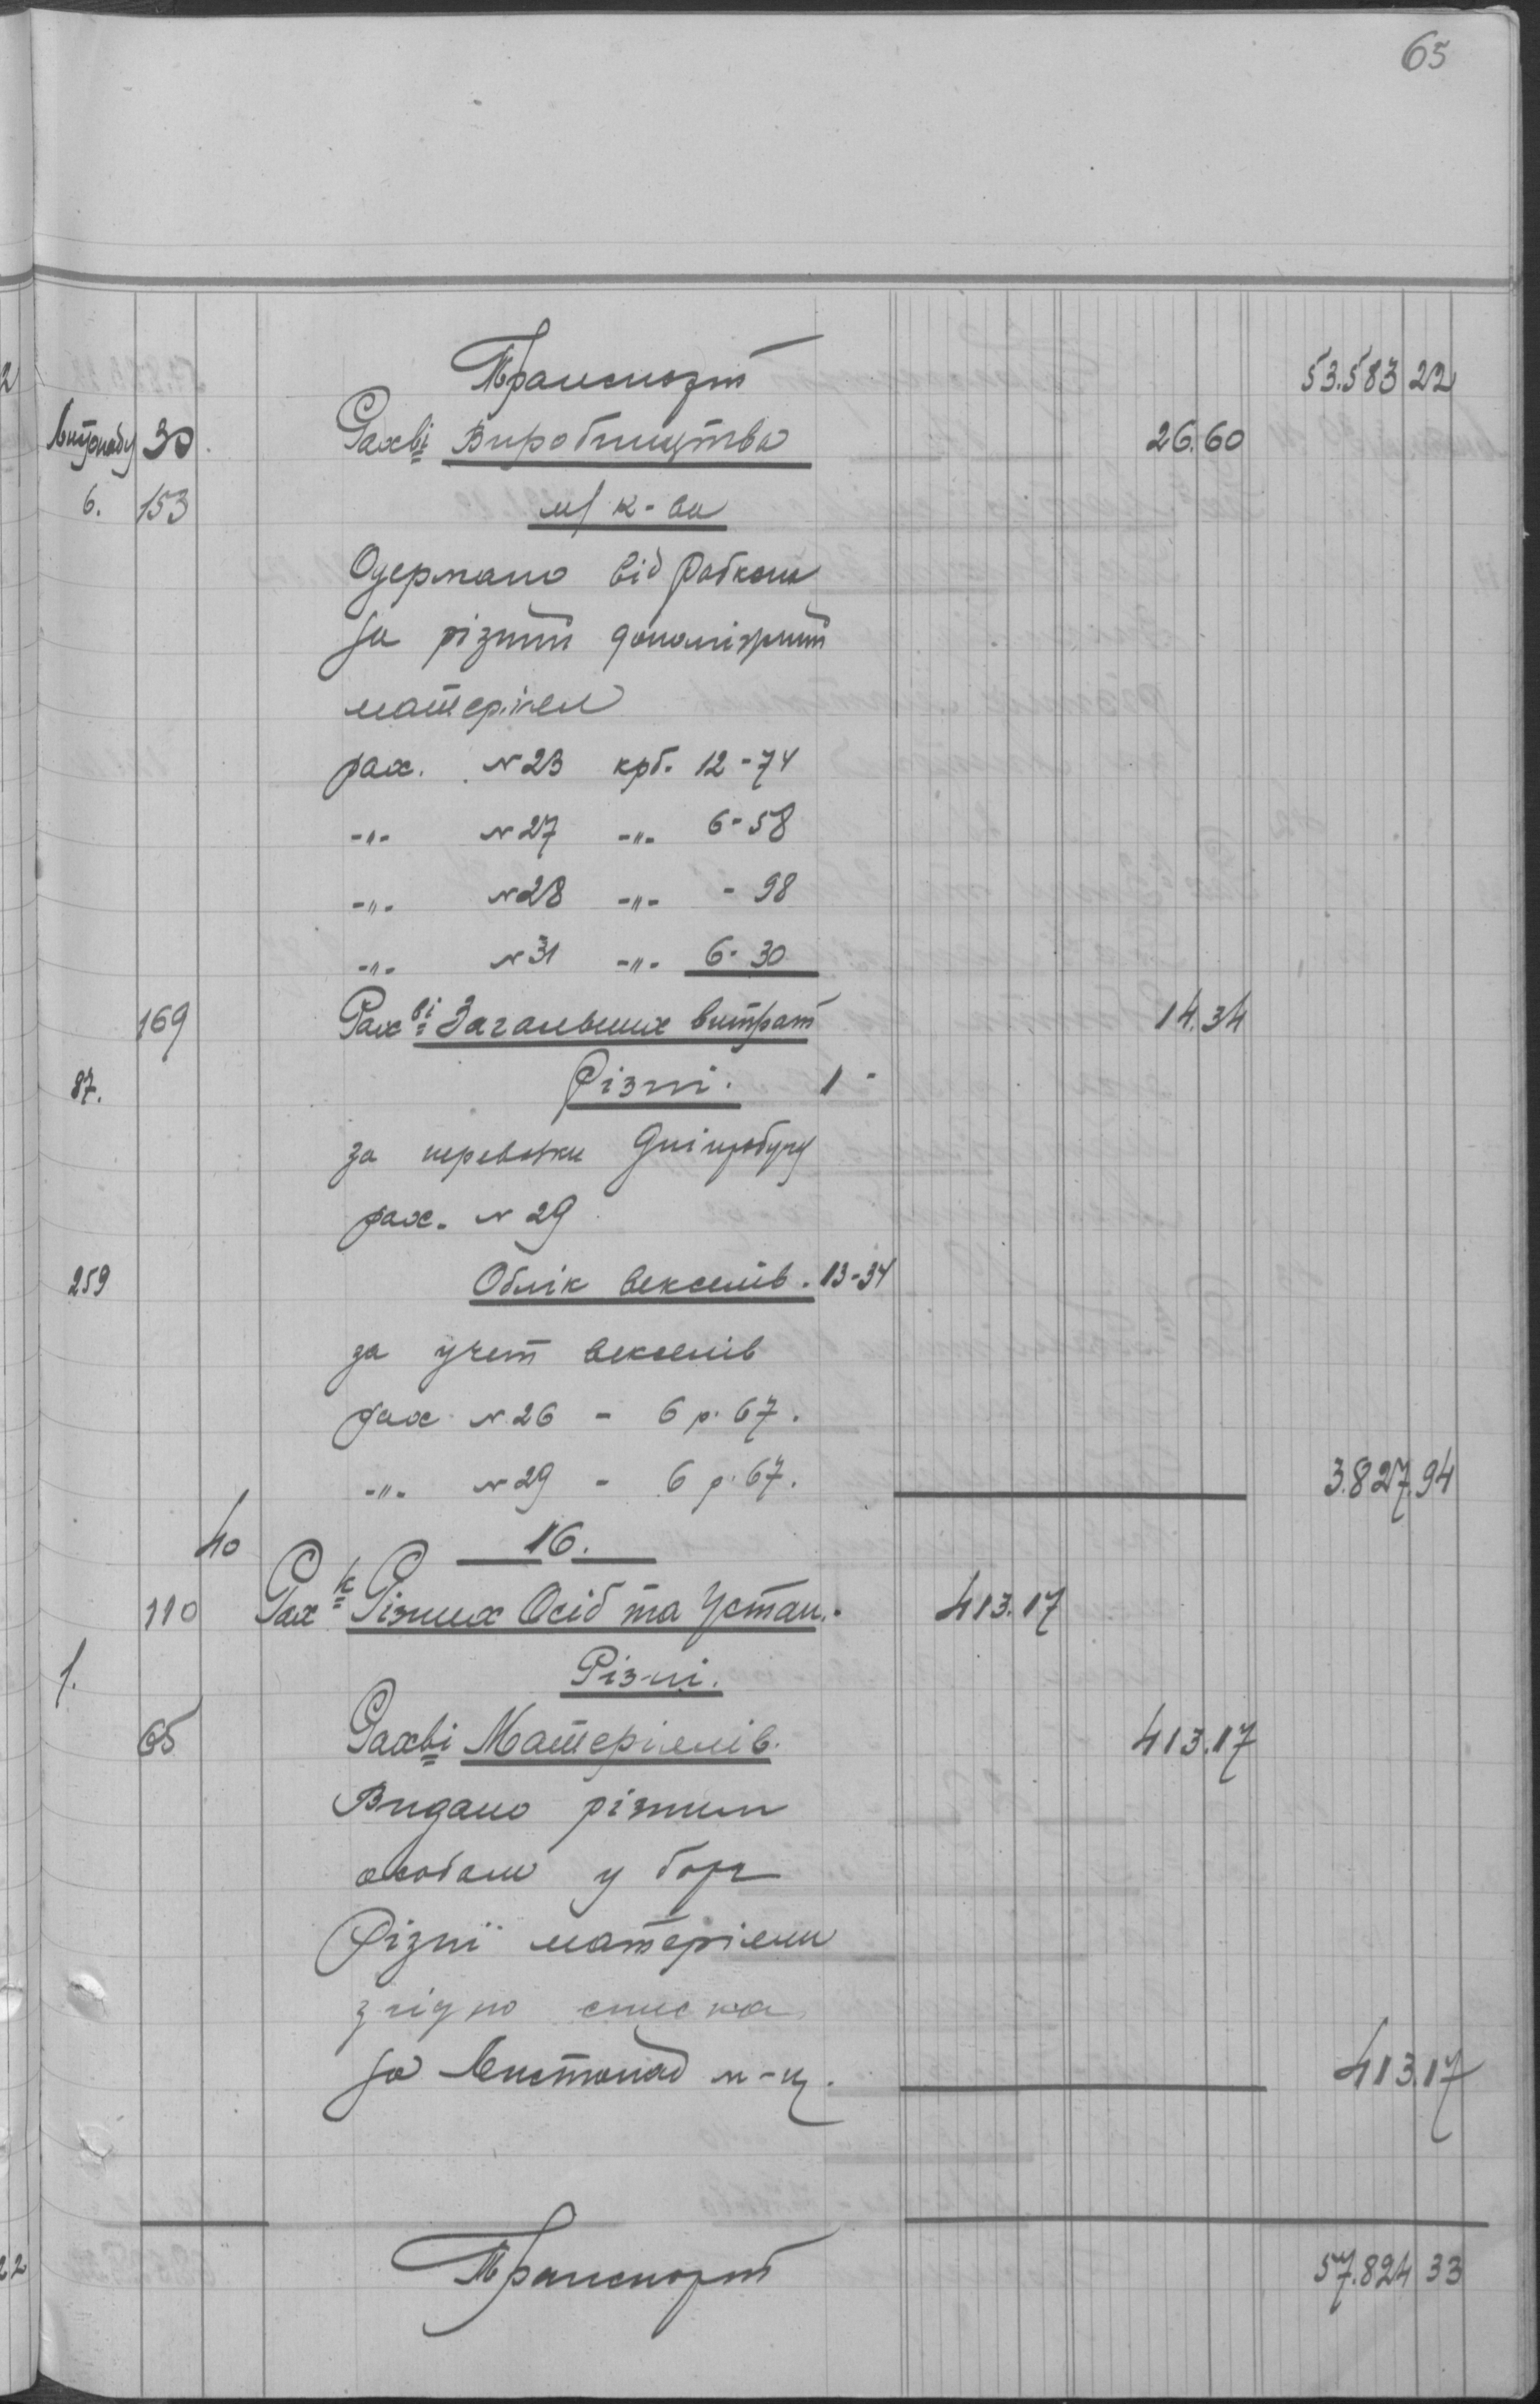 65
Транспорт 53.583 22
Листопаду 30 Рахві Виробництва 26.60
6. 153 м/ к-ва
Одержано від Робкопа
за різний допоміжний
матеріял
рах. №23 крб. 12-74
-"- №27 -"- 6-58
-"- №28 -"- -98
-"- №31 -"- 6-30
169 Рахві Загальних витрат 14.34
87. Різні. 1-
за перевозки
рах. №29
259 Облік векселів. 13-34
за учет векселів
рах. №26 - 6 р. 67.
-"- №29 - 6 р. 67. 3.827.94
40 16.
110 Рах-к Різних Осіб та Устан. 413.17
1. Різні.
65 Рахві Матеріялів. 413.17
Видано різним
особам у борг
Різнї матеріяли
згідно списка
за Листопад м-ц. 413.17
Транспорт 57.824 33